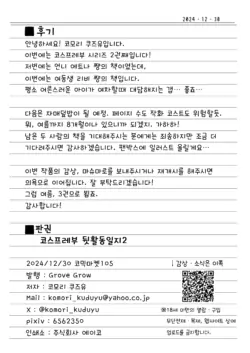 2024・12・30
■후기
안녕하세요! 코모리 쿠즈유입니다.
이번에는 코스프레부 시리즈 2권째입니다!
저번에는 언니 에트나 쨩의 책이었는데,
이번에는 여동생 리버 쨩의 책입니다.
평소 어른스러운 아이가 여차할때 대담해지는 갭… 좋죠…
다음은 자매덮밥이 될 예정. 페이지 수도 작화 코스트도 위험할듯.
뭐, 여름까지 8개월이나 있으니까 되겠지. 가하하!
남은 두 사람의 책을 기대해주시는 분에게는 죄송하지만 조금 더
기다려주시면 감사하겠습니다. 팬박스에 일러스트 올릴게요…
이번 작품의 감상, 마슈마로를 보내주시거나 재게시를 해주시면
의욕으로 이어집니다. 잘 부탁드리겠습니다!
그럼 여름, 3권으로 뵙죠.
감사합니다!
■판권
코스프레부 뒷활동일지2
2024/12/30 코믹마켓105
발행 : Grove Grow
저자 : 코모리 쿠즈유
Mail : komori_kuduyu@yahoo.co.jp
X : @komori_kuduyu
pixiv : 6562350
인쇄소 : 주식회사 에이코
↓감상・소식은 이쪽
※18세 미만의 열람・구입
무단전재・복제, 웹사이트 상에
업로드를 금지합니다.